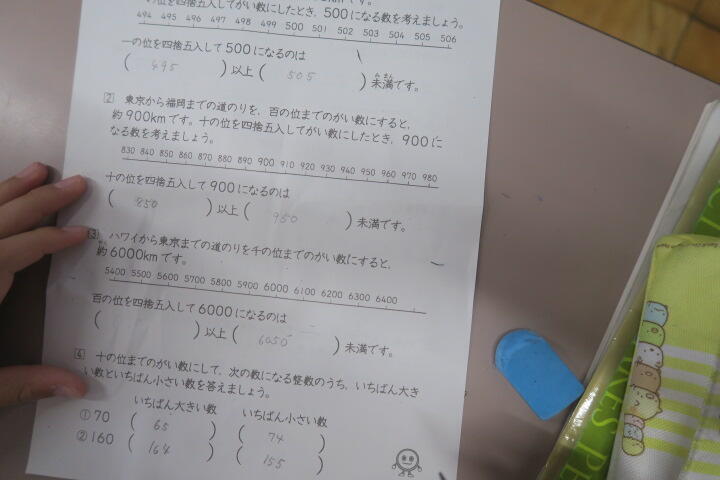 の位を四捨五入してがい数にしたとき,500になる数を考えましょう。
494 495 496 497 498 499 500 501 502 503 504 505 506
一の位を四捨五入して500になるのは
( 495 )以上( 505 )未満です。
みまん
2 東京から福岡までの道のりを,百の位までのがい数にすると,
約900kmです。十の位を四捨五入してがい数にしたとき,900に
なる数を考えましょう。
830 840 850 860 870 880 890 900 910 920 930 940 950 960 970 980
十の位を四捨五入して900になるのは
( 850 )以上( 950 )未満です。
3 ハワイから東京までの道のりを千の位までのがい数にすると,
約6000kmです。
5400 5500 5600 5700 5800 5900 6000 6100 6200 6300 6400
百の位を四捨五入して6000になるのは
( )以上( 6050 )未満です。
4 十の位までのがい数にして,次の数になる整数のうち,いちばん大き
い数といちばん小さい数を答えましょう。
いちばん大きい数 いちばん小さい数
①70 ( 65 ) ( 74 )
②160 ( 164 ) ( 155 )